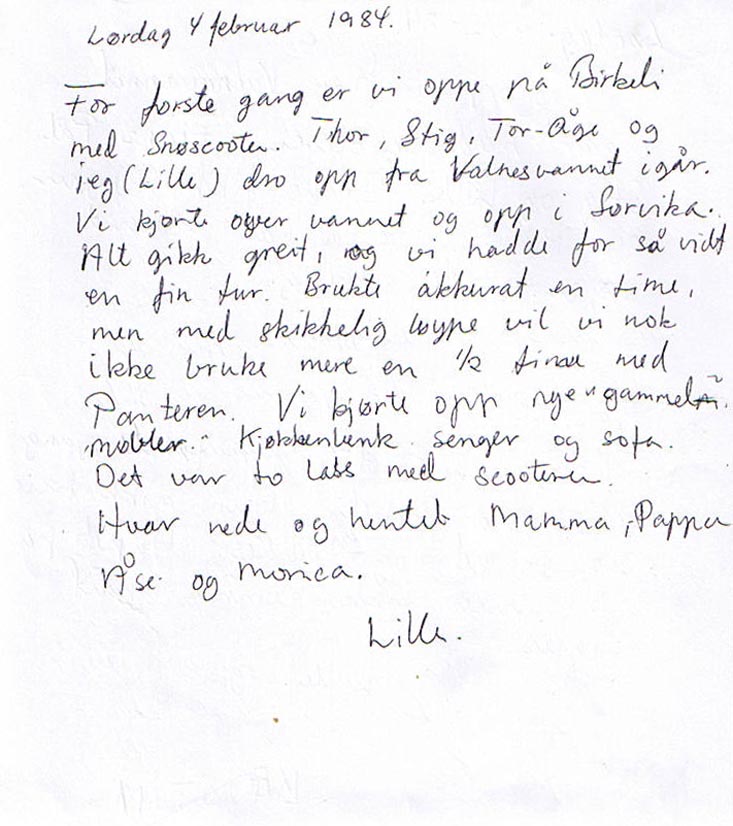 Lørdag 4 februar 1984.
For første gang er vi oppe på Birkeli
med Snøscooter. Thor, Stig, Tor-Åge og
jeg (Lille) dro opp fra Valnesvannet igår.
Vi kjørte over vannet og opp i Sørvika.
Alt gikk greit, og vi hadde for så vidt
en fin tur. Brukte akkurat en time,
men med skikkelig løype vil vi nok
ikke bruke mere en 1/2 time med
Panteren. Vi kjørte opp nye "gammel
møbler." Kjøkkenbenk senger og sofa.
Det var to lass med scooteren.
Hvar nede og hentet Mamma, Pappa
Åse og Monica.
Lille.